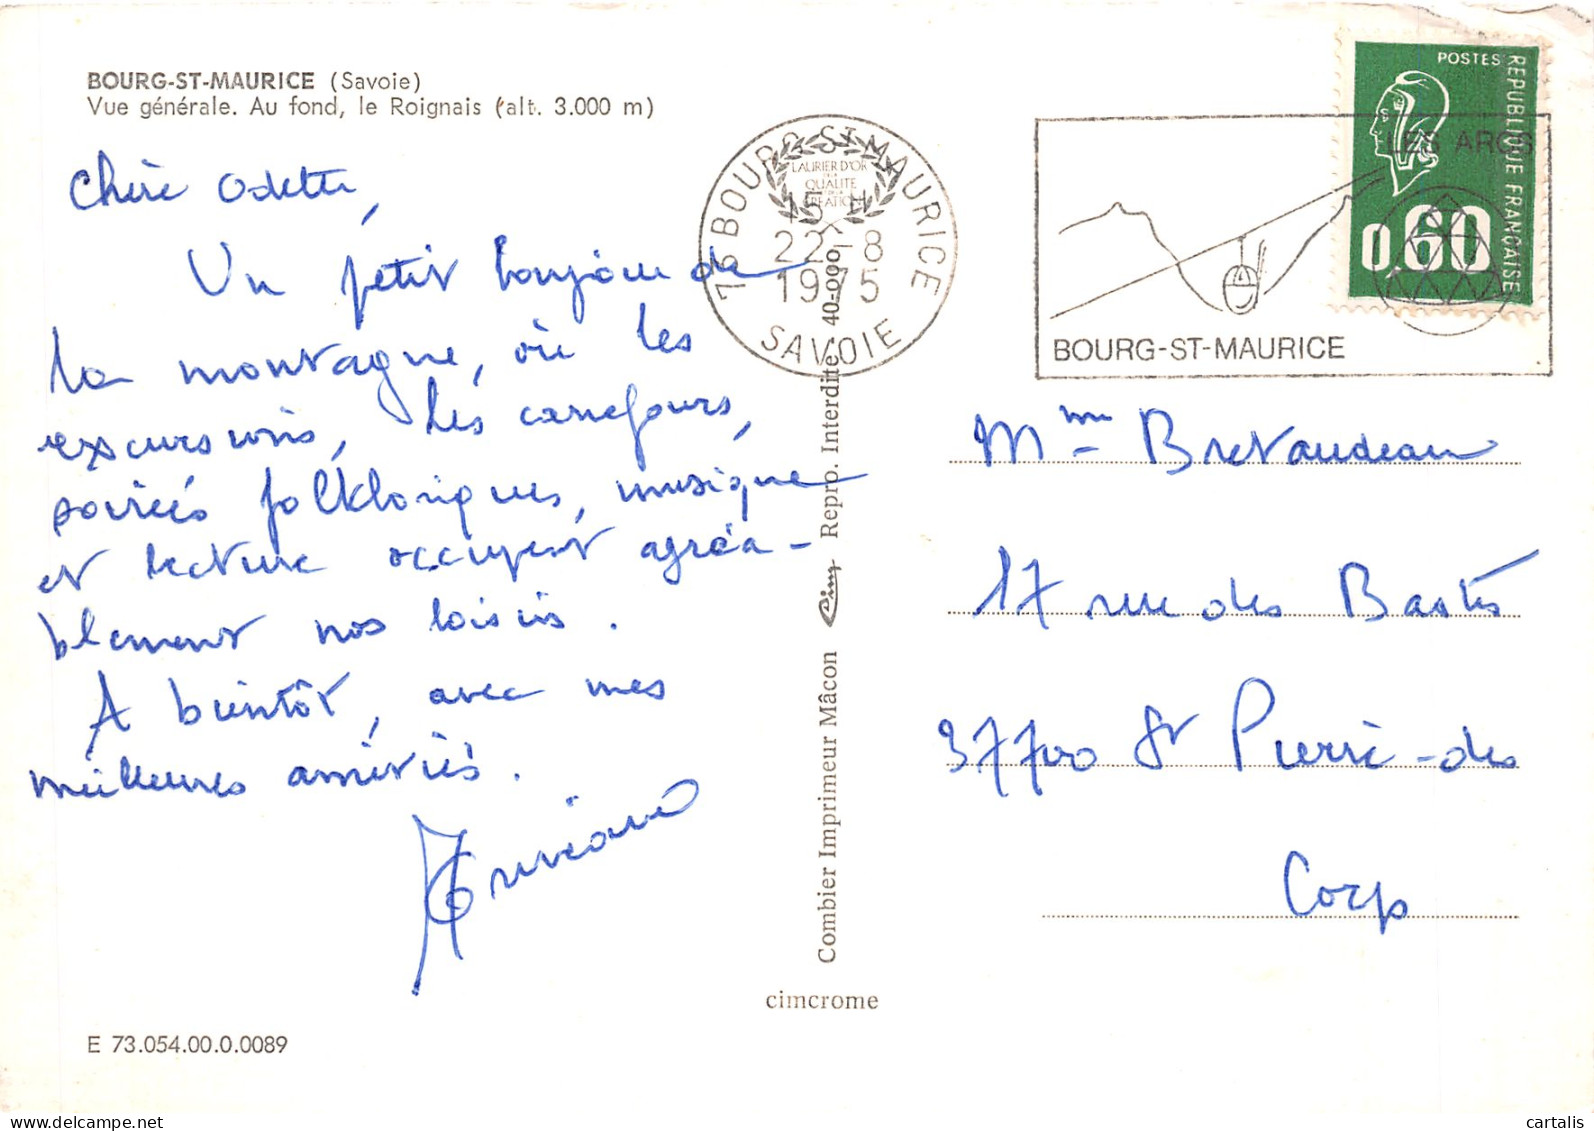 BOURG-ST-MAURICE (Savoie)
Vue générale. Au fond, le Roignais (alt. 3.000 m)
Chère Odette,
Un petit bonjour de
la montagne, où les
excursions, les carrefours,
soirées folkloriques, musique
et lecture occupent agréa-
blement nos loisirs.
A bientôt, avec mes
meilleures amitiés.
E 73.054.00.0.0089
Combier Imprimeur Mâcon Cim Repro. Interdite 40-000
cimcrome
LAURIER D'OR
DE LA
QUALITE
CREATION
73 BOURG-ST-MAURICE
15 H
22-8
1975
SAVOIE
LES ARCS
BOURG-ST-MAURICE
POSTES
REPUBLIQUE FRANÇAISE
0,60
Mme Bretaudeau
17 rue des Bastes
37700 St Pierre-des
Corps
cartalis